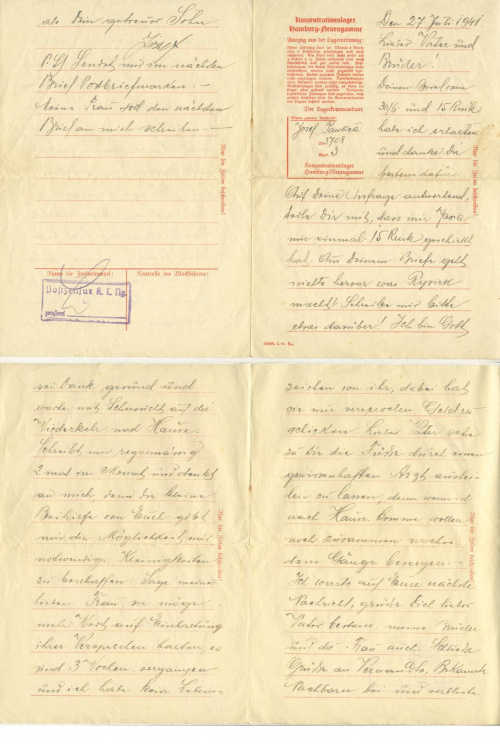 Konzentrationslager
Hamburg-Neuengamme
Auszug aus der Lagerordnung:
Der Lagerkommandant.
Meine genaue Anschrift:
Josef Pawlica
No 3709
Block 3
Konzentrationslager
Hamburg-Neuengamme
Nur die Zeilen beschreiben!
Den 27 Juli 1941
Lieber Vater und
Brüder!
Deinen Brief vom
30/6 und 15 Rmk
habe ich erhalten
und danke Dir
bestens dafür.
Auf Deine Anfrage antwortend,
teile Dir mit, dass mir
nur einmal 15 Rmk geschickt
hat. Aus Deinem Briefe geht
nichts hervor was
macht! Schreibe mir bitte
etwas darüber! Ich bin Gott
sei Dank gesund und
warte mit Sehnsucht auf die
Wiederkehr nach Hause.
Schreibt mir regelmässig
2 mal im Monat und denkt
an mich, denn die kleine
Beihilfe von Euch gibt
mir die Möglichkeit, mir
notwendige Kleinigkeiten
zu beschaffen. Sage meiner
lieben Frau, sie möge
mehr Wert auf Einhaltung
ihrer Versprechen halten, es
sind 3 Wochen vergangen
und ich habe kein Lebens-
Nur die Zeilen beschreiben!
zeichen von ihr, dabei hat
sie mir versprochen Geld zu
schicken. Lieber Vater gehe
zu Dir die Füsse durch einen
gewissenhaften Arzt
zu lassen, denn wenn ich
nach Hause komme wollen
noch zusammen
Gänge besorgen.-
Ich warte auf Eure nächste
Nachricht, grüsse Dich lieber
Vater bestens, meine Brüder
und die Frau auch. Schliesse
Grüsse an Verwandte, Bekannte
Nachbarn bei und verbleibe
Nur die Zeilen beschreiben!
als Dein getreuer Sohn
Józef
P.S! Sendet mir im nächsten
Brief Postbriefmarken. -
Meine Frau soll den nächsten
Brief an mich schreiben. -
Nur die Zeilen beschreiben!
Kontrolle des Blockführers:
Postzensur K. L. Ng.
geprüft